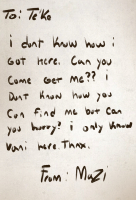 To: Teko
i dont know how i
got here. Can you
come get me?? i
Dont know how you
can find me but can
you hurry? i only know
Vani here. Thnx.
From: Muzi